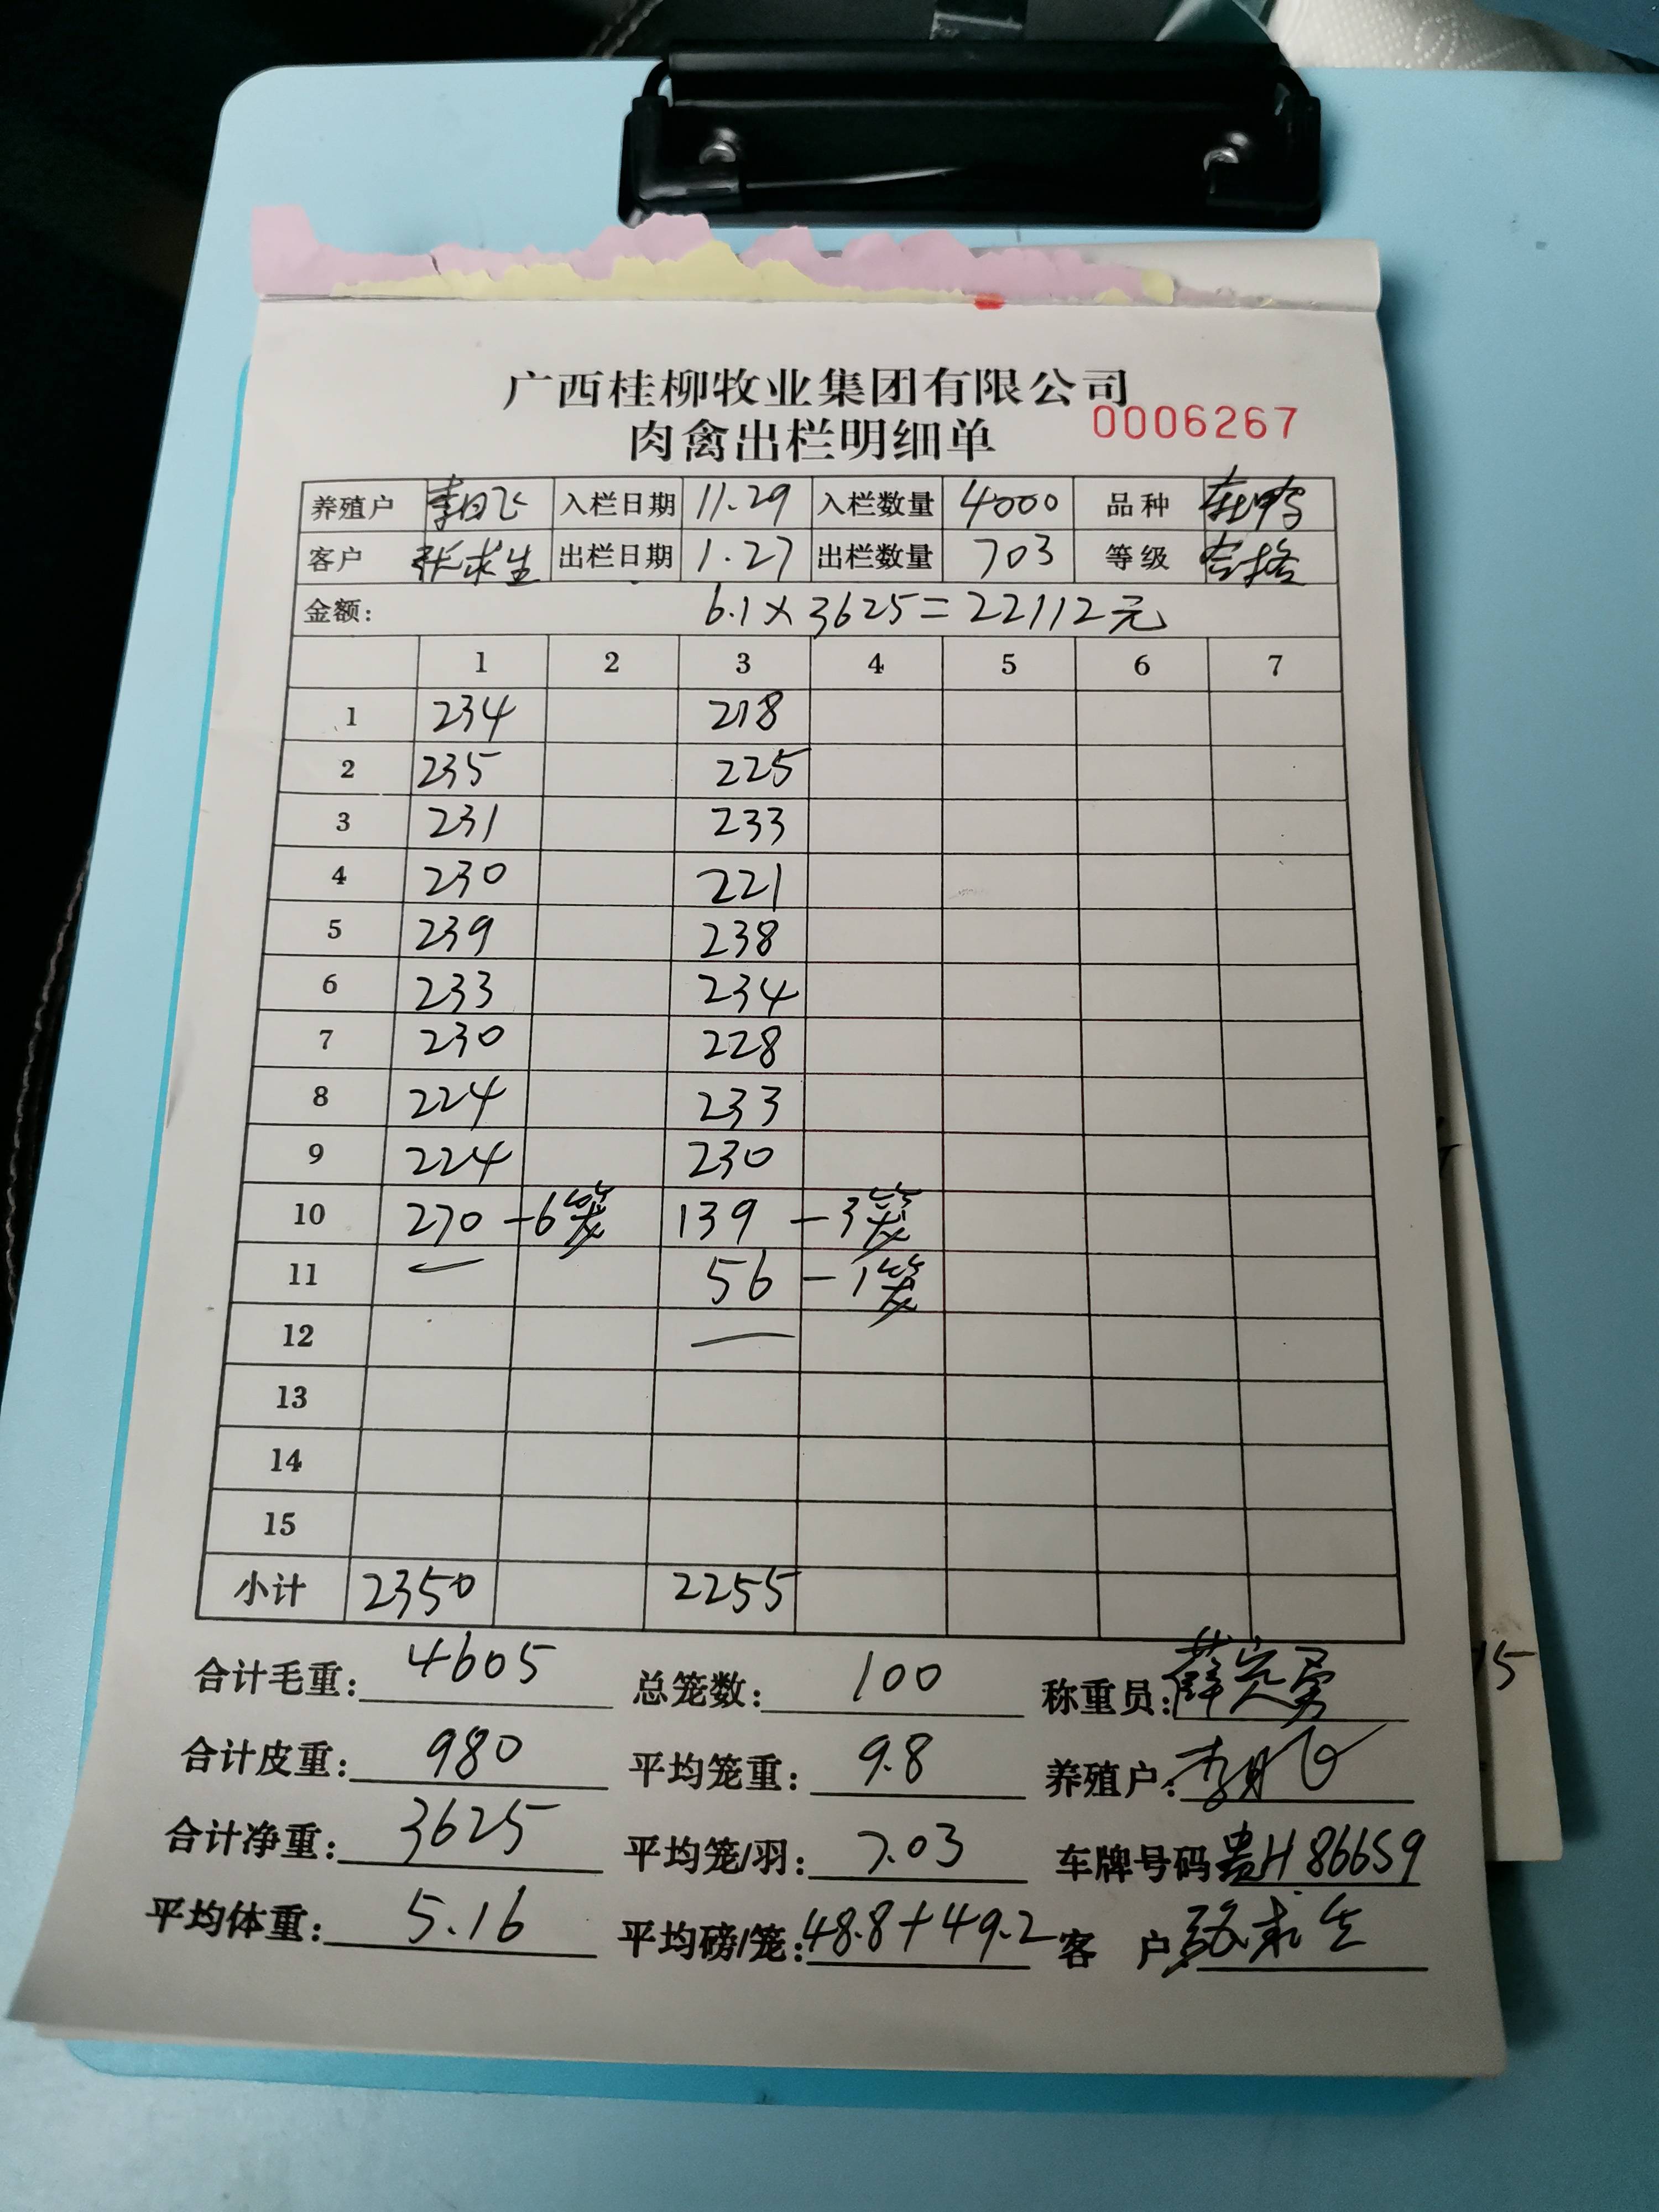 广西桂柳牧业集团有限公司
肉禽出栏明细单 0006267
养殖户 李日飞 入栏日期 11.29 入栏数量 4000 品种
客户 张求生 出栏日期 1.27 出栏数量 703 等级 合格
金额: 6.1×3625=22112元
1 2 3 4 5 6 7
1 234 218
2 235 225
3 231 233
4 230 221
5 239 238
6 233 234
7 230 228
8 224 233
9 224 230
10 270 -6笼 139 -3笼
11 56 -1笼
12
13
14
15
小计 2350 2255
合计毛重: 4605 总笼数: 100 称重员:
合计皮重: 980 平均笼重: 9.8 养殖户:
合计净重: 3625 平均笼/羽: 7.03 车牌号码 贵H86659
平均体重: 5.16 平均磅/笼: 48.8+49.2 客 户 张求生
15